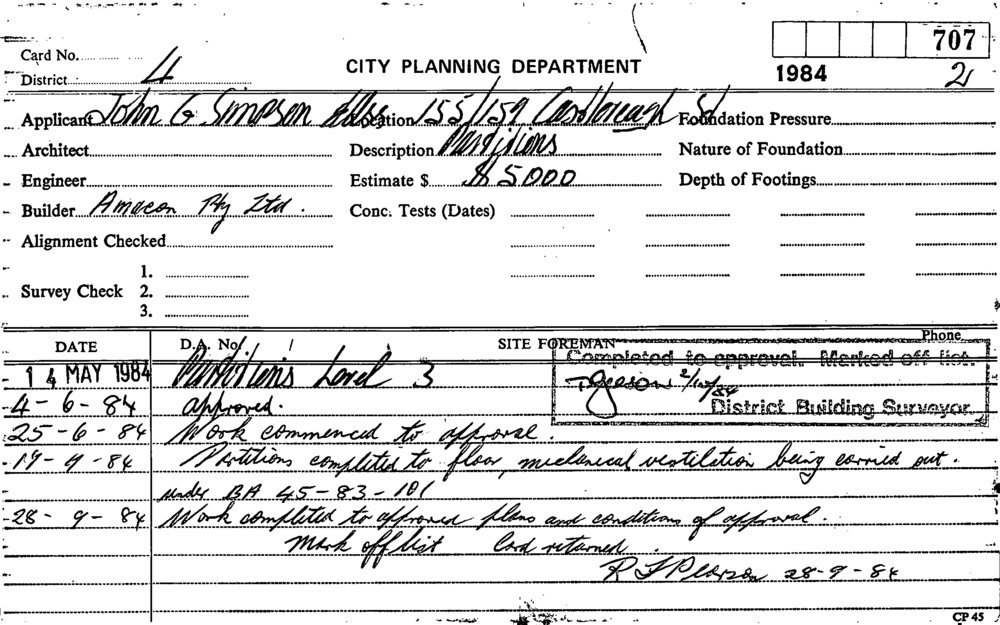 707
Card No.
CITY PLANNING DEPARTMENT
1984 2
District 4
Applicant John G Simpson Location 155/159 Castlereagh St Foundation Pressure
Architect Description Partitions Nature of Foundation
Engineer Estimate $ $5000 Depth of Footings
Builder Amacon Pty Ltd. Conc. Tests (Dates)
Alignment Checked
1.
Survey Check 2.
3.
Phone
DATE D.A. No. SITE FOREMAN
Completed to approval. Marked off list.
14 MAY 1984 Partitions Level 3
2/10/84
4-6-84 approved. District Building Surveyor
25-6-84 Work commenced to approval.
19-9-84 Partitions completed to floor, mechanical ventilation being carried out.
under BA 45-83-101
28-9-84 Work completed to approved plans and conditions of approval.
Mark off list Card returned.
R J Pearson 28-9-84
CP 45